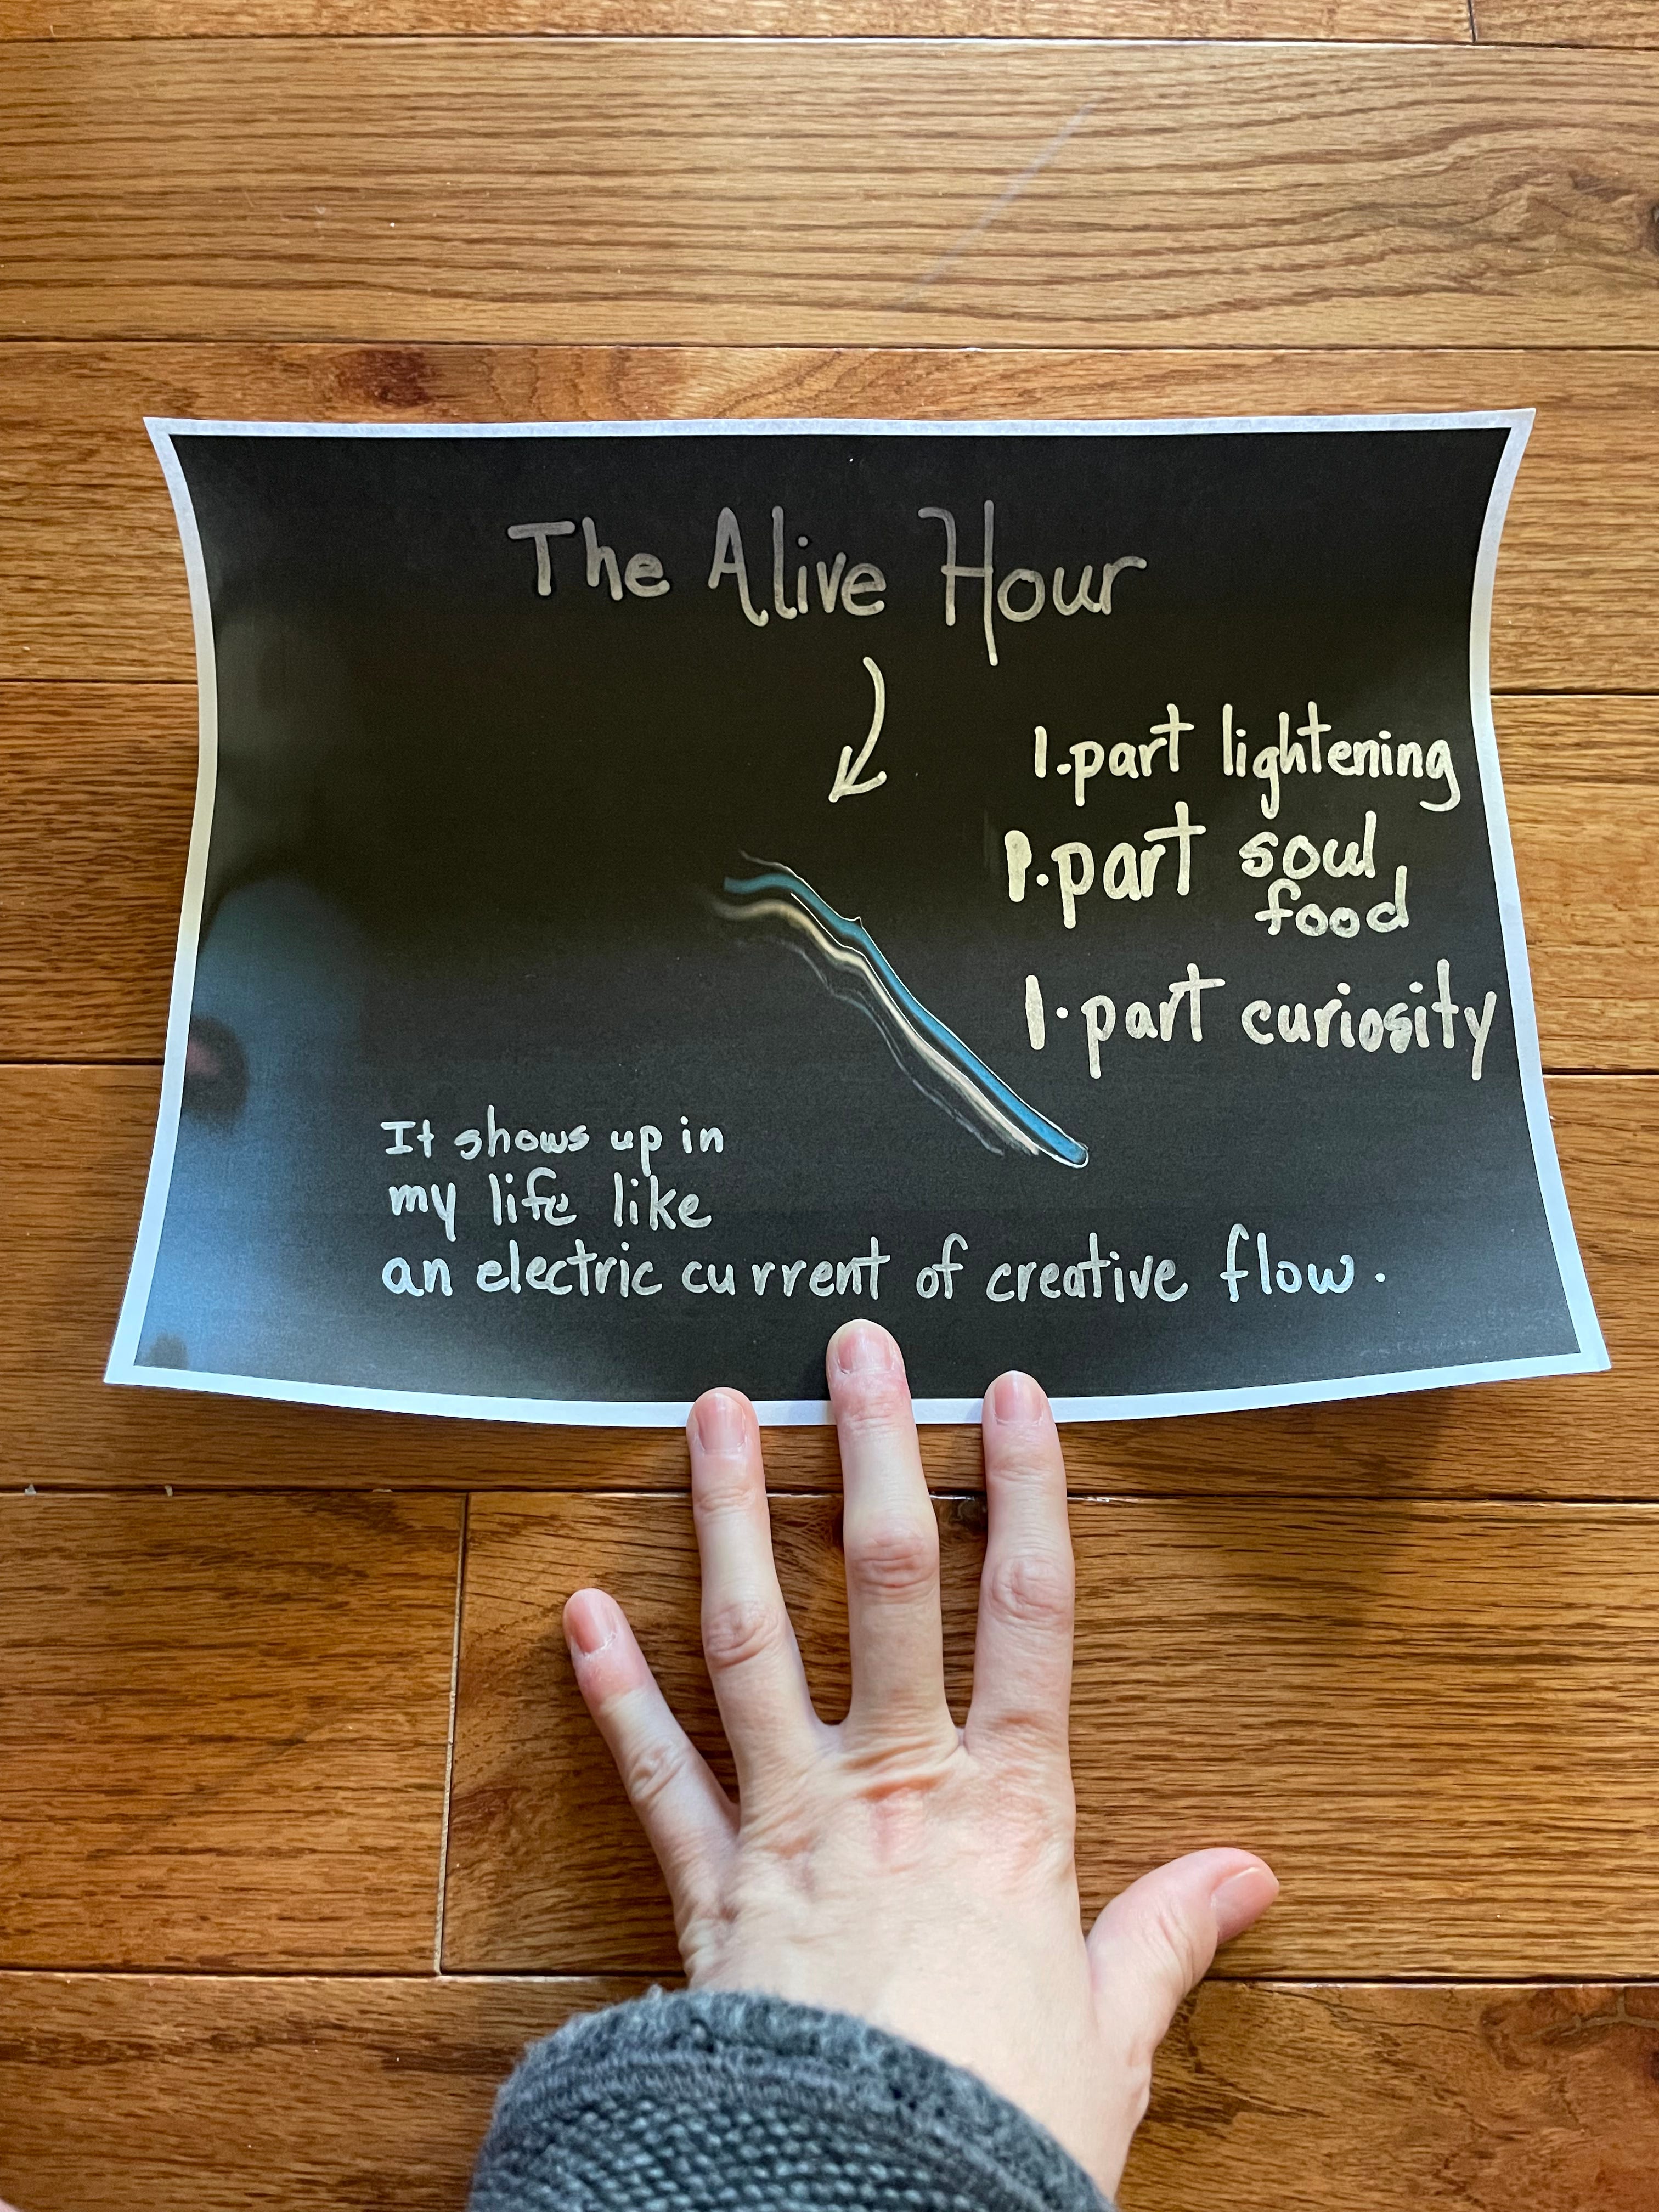 The Alive Hour
1.part lightening
1.part soul
food
1.part curiosity
It shows up in
my life like
an electric current of creative flow.